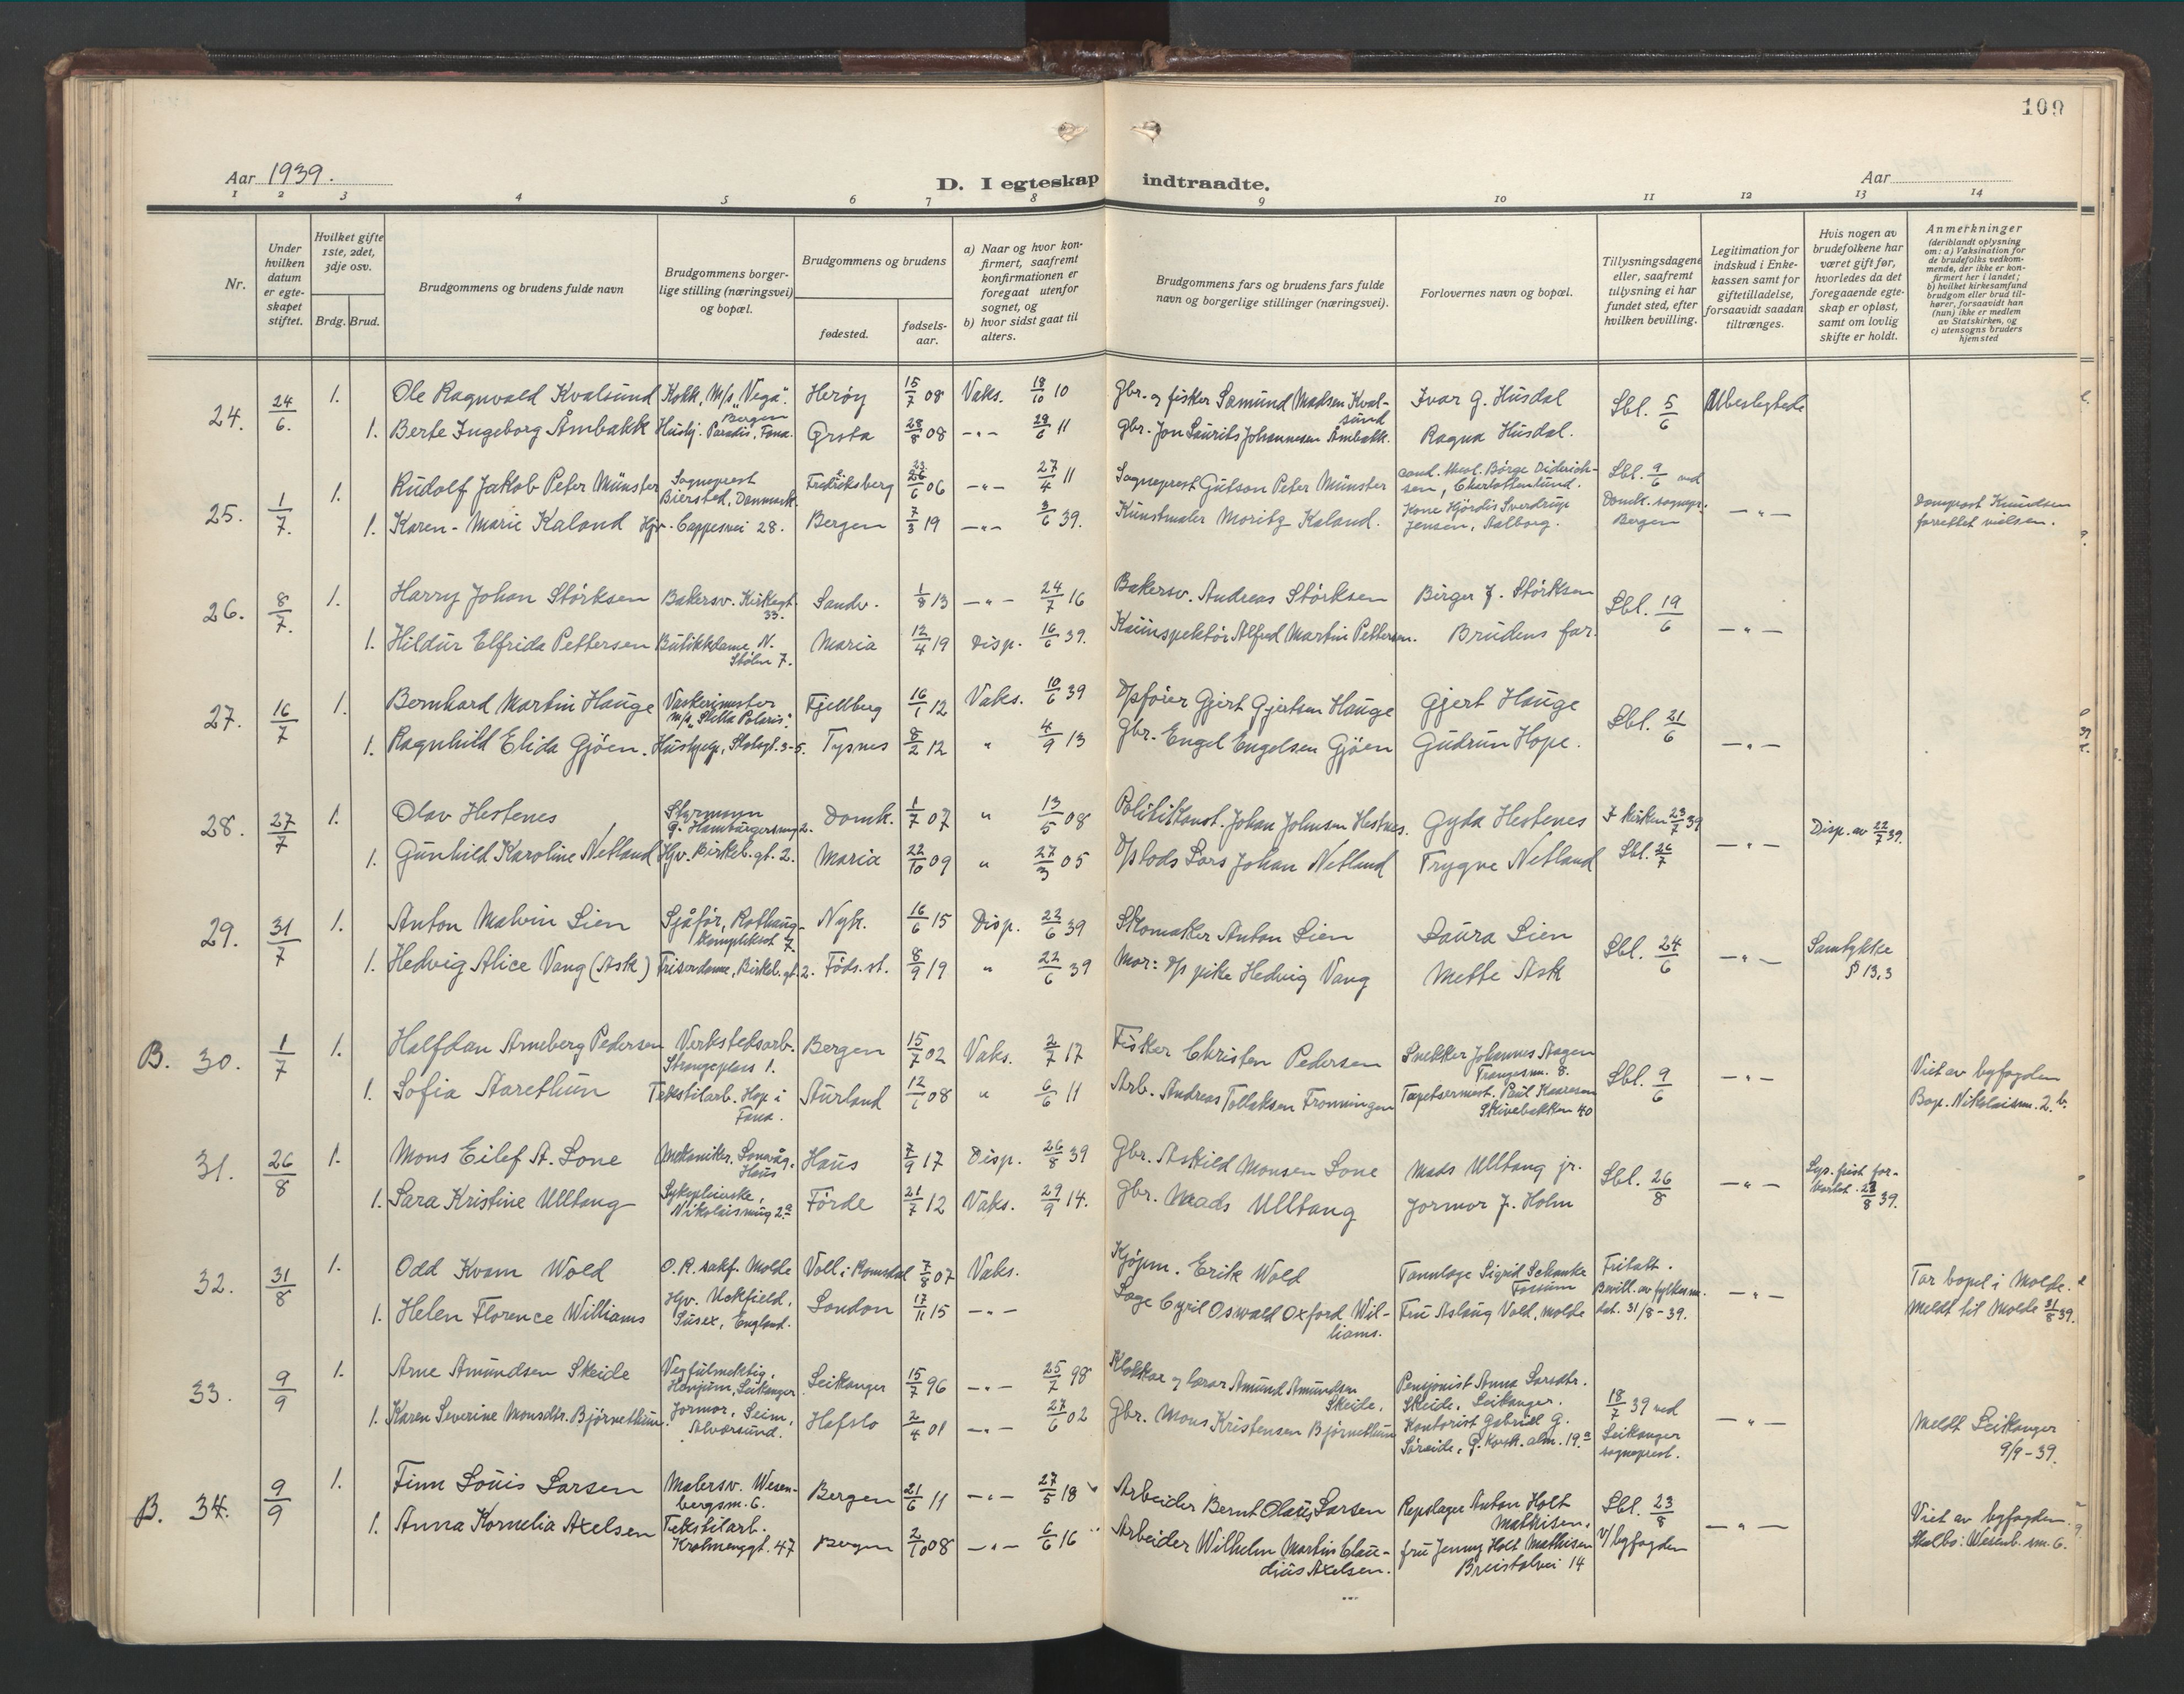 109
Aar 1939.
D. I egteskap indtraadte.
Aar
1 2 3 4 5 6 7 8 9 10 11 12 13 14
Nr.
Under hvilken datum er egteskapet stiftet.
Hvilket gifte 1ste, 2det, 3dje osv.
Brdg. Brud.
Brudgommens og brudens fulde navn
Brudgommens borgerlige stilling (næringsvei) og bopæl.
Brudgommens og brudens
fødested.
fødselsaar.
a) Naar og hvor konfirmert, saafremt konfirmationen er foregaat utenfor sognet, og
b) hvor sidst gaat til alters.
Brudgommens fars og brudens fars fulde navn og borgerlige stillinger (næringsvei).
Forlovernes navn og bopæl.
Tillysningsdagene eller, saafremt tillysning ei har fundet sted, efter hvilken bevilling.
Legitimation for indskud i Enkekassen samt for giftetilladelse, forsaavidt saadan tiltrænges.
Hvis nogen av brudefolkene har været gift før, hvorledes da det foregaaende egteskap er opløst, samt om lovlig skifte er holdt.
Anmerkninger
(deriblandt oplysning om: a) Vaksination for de brudefolks vedkommende, der ikke er konfirmert her i landet; b) hvilket kirkesamfund brudgom eller brud tilhører, forsaavidt han (hun) ikke er medlem av Statskirken, og c) utensogns bruders hjemsted
24. 24/6. 1. Ole Ragnvald Kvalsund Kokk, M/s "Vega". Bergen Herøy 15/7 08 Vaks. 18/10 10 Gbr. og fisker Samund Madsen Kvalsund Ivar G. Husdal Lbl. 5/6 Ubeslegtede
1. Berte Ingeborg Åmbakk Hushj. Paradis, Fana. Ørsta 28/8 08 -"- 29/6 11 Gbr. Jon Laurits Johannesen Åmbakk. Ragna Husdal.
25. 1/7. 1. Rudolf Jakob Peter Münster Sogneprest Biersted, Danmark. Fredriksberg 26/6 06 -"- 27/4 11 Sogneprest Gutson Peter Münster cand. theol. Börge Diderichsen, Charlottenlund. Lbl. 9/6 ved
1. Karen-Marie Kaland Hjv. Cappesvei 28. Bergen 7/3 19 -"- 3/6 39. Kunstmaler Moritz Kaland. Kone Hjördis Sverdrup Jensen, Aalborg. Domk. sognepr. Bergen -"- Domprost Knudsen forrettet vielsen.
26. 8/7. 1. Harry Johan Störksen Bakersv. Kirkegt. 33. Sandv. 1/8 13 -"- 24/7 16 Bakersv. Andreas Störksen Birger J. Störksen Lbl. 19/6
1. Hildur Elfrida Pettersen Butikkdame, N. Stølen 7. Maria 12/4 19 Disp. 16/6 39. Kaiinspektör Alfred Martin Pettersen. Brudens far. -"-
27. 16/7 1. Bernhard Martin Hauge Vaskerimester m/s "Stella Polaris". Fjellberg 16/1 12 Vaks. 10/6 39 Opföier Gjert Gjertsen Hauge Gjert Hauge Lbl. 21/6
1. Ragnhild Elida Gjöen. Hushjelp, Skolegt. 3-5. Tysnes 8/2 12 " 4/9 13 Gbr. Engel Engelsen Gjöen Gudrun Hope. -"-
28. 27/7 1. Olav Hestenes Styrmann G. Hamburgersmug 2. Domk. 1/7 07 " 13/5 08 Politikonst. Johan Johnsen Hestnes. Gyda Hestenes I kirken 23/7 39 Disp. av 22/7 39.
1. Gunhild Karoline Netland Hjv. Birkeb.gt. 2. Maria 22/10 09 " 27/3 05 Oplods Lars Johan Netland Trygve Netland Lbl. 26/7 -"-
29. 31/7 1. Anton Malvin Lien Sjåför, Rothaugkomplekset 7. Nykr. 16/6 15 Disp. 22/6 39 Skomaker Anton Lien Laura Lien Lbl. 24/6 -"- Samtykke § 13,3
1. Hedvig Alice Vang (Ask) Frisördame, Birkeb.gt. 2. Föds.st. 8/9 19 " 22/6 39 Mor: Op pike Hedvig Vang Mette Ask
B. 30. 1/7 1. Halfdan Arneberg Pedersen Verkstedsarb. Strangeplass 1. Bergen 15/7 02 Vaks. 2/7 17 Fisker Christen Pedersen Snekker Johannes Aagen Trangesm. 8. Lbl. 9/6 -"- Viet av byfogden
1. Sofia Aarethun Tekstilarb. Hop i Fana. Aurland 12/1 08 " 6/6 11 Arb. Andreas Tollaksen Fronningen Tapetsermest. Paul Kaaresen Skivebakken 40 Bop. Nikolaism. 2.b.
31. 26/8 1. Mons Eilef A. Lone Mekaniker. Lonevåg, Haus Haus 7/9 17 Disp. 26/8 39 Gbr. Askild Monsen Lone Mads Ulltang jr. Lbl. 26/8 -"- Lys. frist forkortet. 28/8 39.
1. Sara Kristine Ulltang Sykepleierske, Nikolaismug 2a Förde 21/7 12 Vaks. 29/9 14. Gbr. Mads Ulltang Jormor J. Holm
32. 31/8 1. Odd Kvam Wold O.R. sakf. Molde Voll i Romsdal 7/8 07 Vaks. Kjöpm. Erik Wold Tannlege Sigrid Schanke Fosum Fritatt. Bevill. av fylkesm. -"- Tar bopel i Molde.
1. Helen Florence Williams Hjv. Uckfield, Susex, England. London 17/11 15 -"- Lege Cyril Oswald Oxford Williams. Fru Aslaug Vold, Molde dat. 31/8-39. Meldt til Molde 31/8 39.
33. 9/9 1. Arne Amundsen Skeide Vegfulmektig, Henjum, Leikanger Leikanger 15/7 96 -"- 25/7 98 Klokkar og lærar Amund Amundsen Skeide. Pensjonist Anna Larsdtr. Skeide, Leikanger. 18/7 39 ved
1. Karen Severine Monsdtr. Björnethun. Jormor, Seim, Alversund. Hafslo 2/4 01 -"- 27/6 02 Gbr. Mons Kristensen Björnethun Kontorist Gabriel G. Söreide, G. Korsk. alm. 19a Leikanger sogneprest. -"- Meldt Leikanger 9/9-39.
B. 34. 9/9 1. Finn Louis Larsen Malersv. Wesenbergsm. 6. Bergen 21/6 11 -"- 27/5 18 Arbeider Bernt Olaus Larsen Repslager Anton Holt Mathisen. Lbl. 23/8 Viet av byfogden.
1. Anna Kornelia Axelsen Tekstilarb. Krohnenggt. 47 Bergen 2/10 08 -"- 6/6 16 Arbeider Wilhelm Martin Claudius Axelsen. fru Jenny Holt Mathisen Breistølvei 14 v/ byfogden -"- Skalbo: Wesenb. sm. 6.